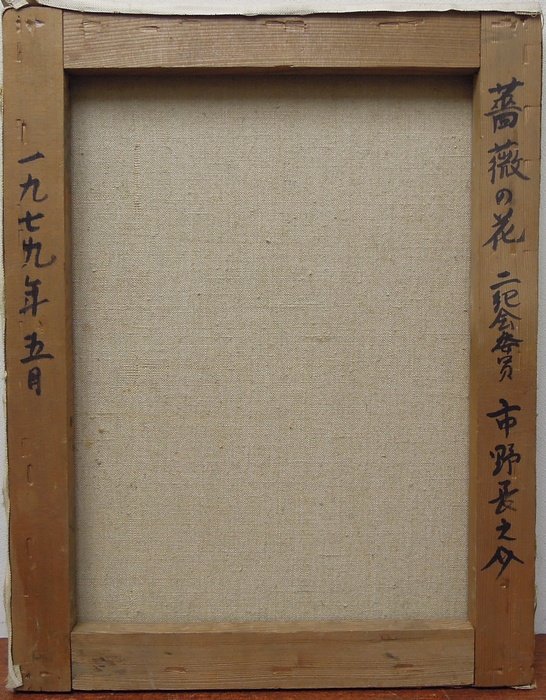 薔薇の花 二紀会委員 市野長之介
一九七九年 五月